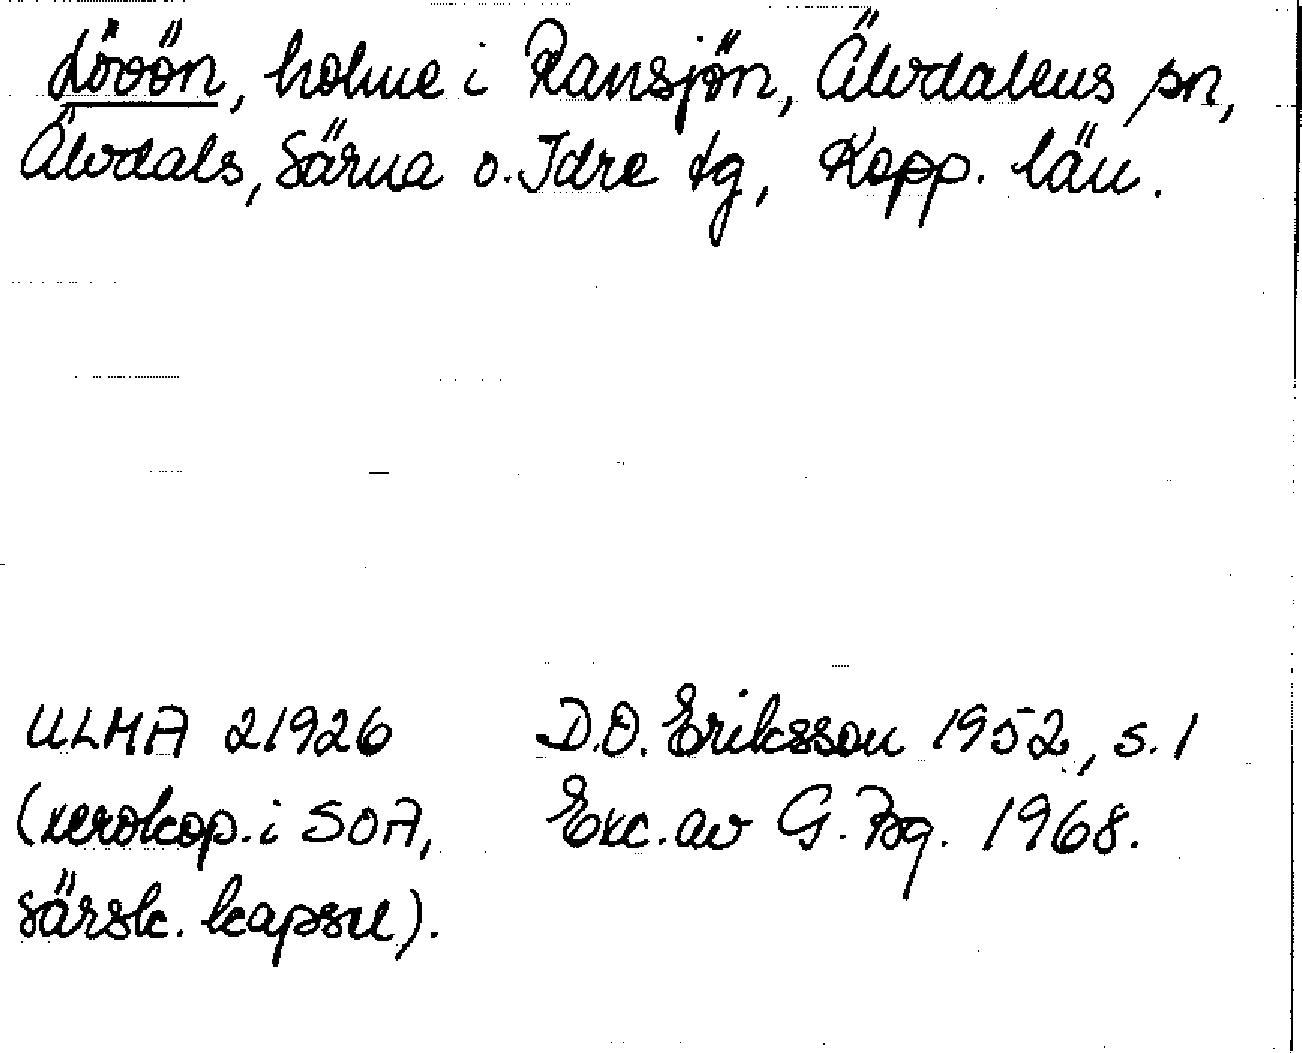 Lövön, holme i Ransjön, Älvdalens sn,
Älvdals, Särna o. Idre tg, Kopp. län.
ULMA 21926
(xerokop. i SOA,
särsk. kapsel).
D.O. Eriksson 1952, s. 1
Exc. av G. Bg. 1968.